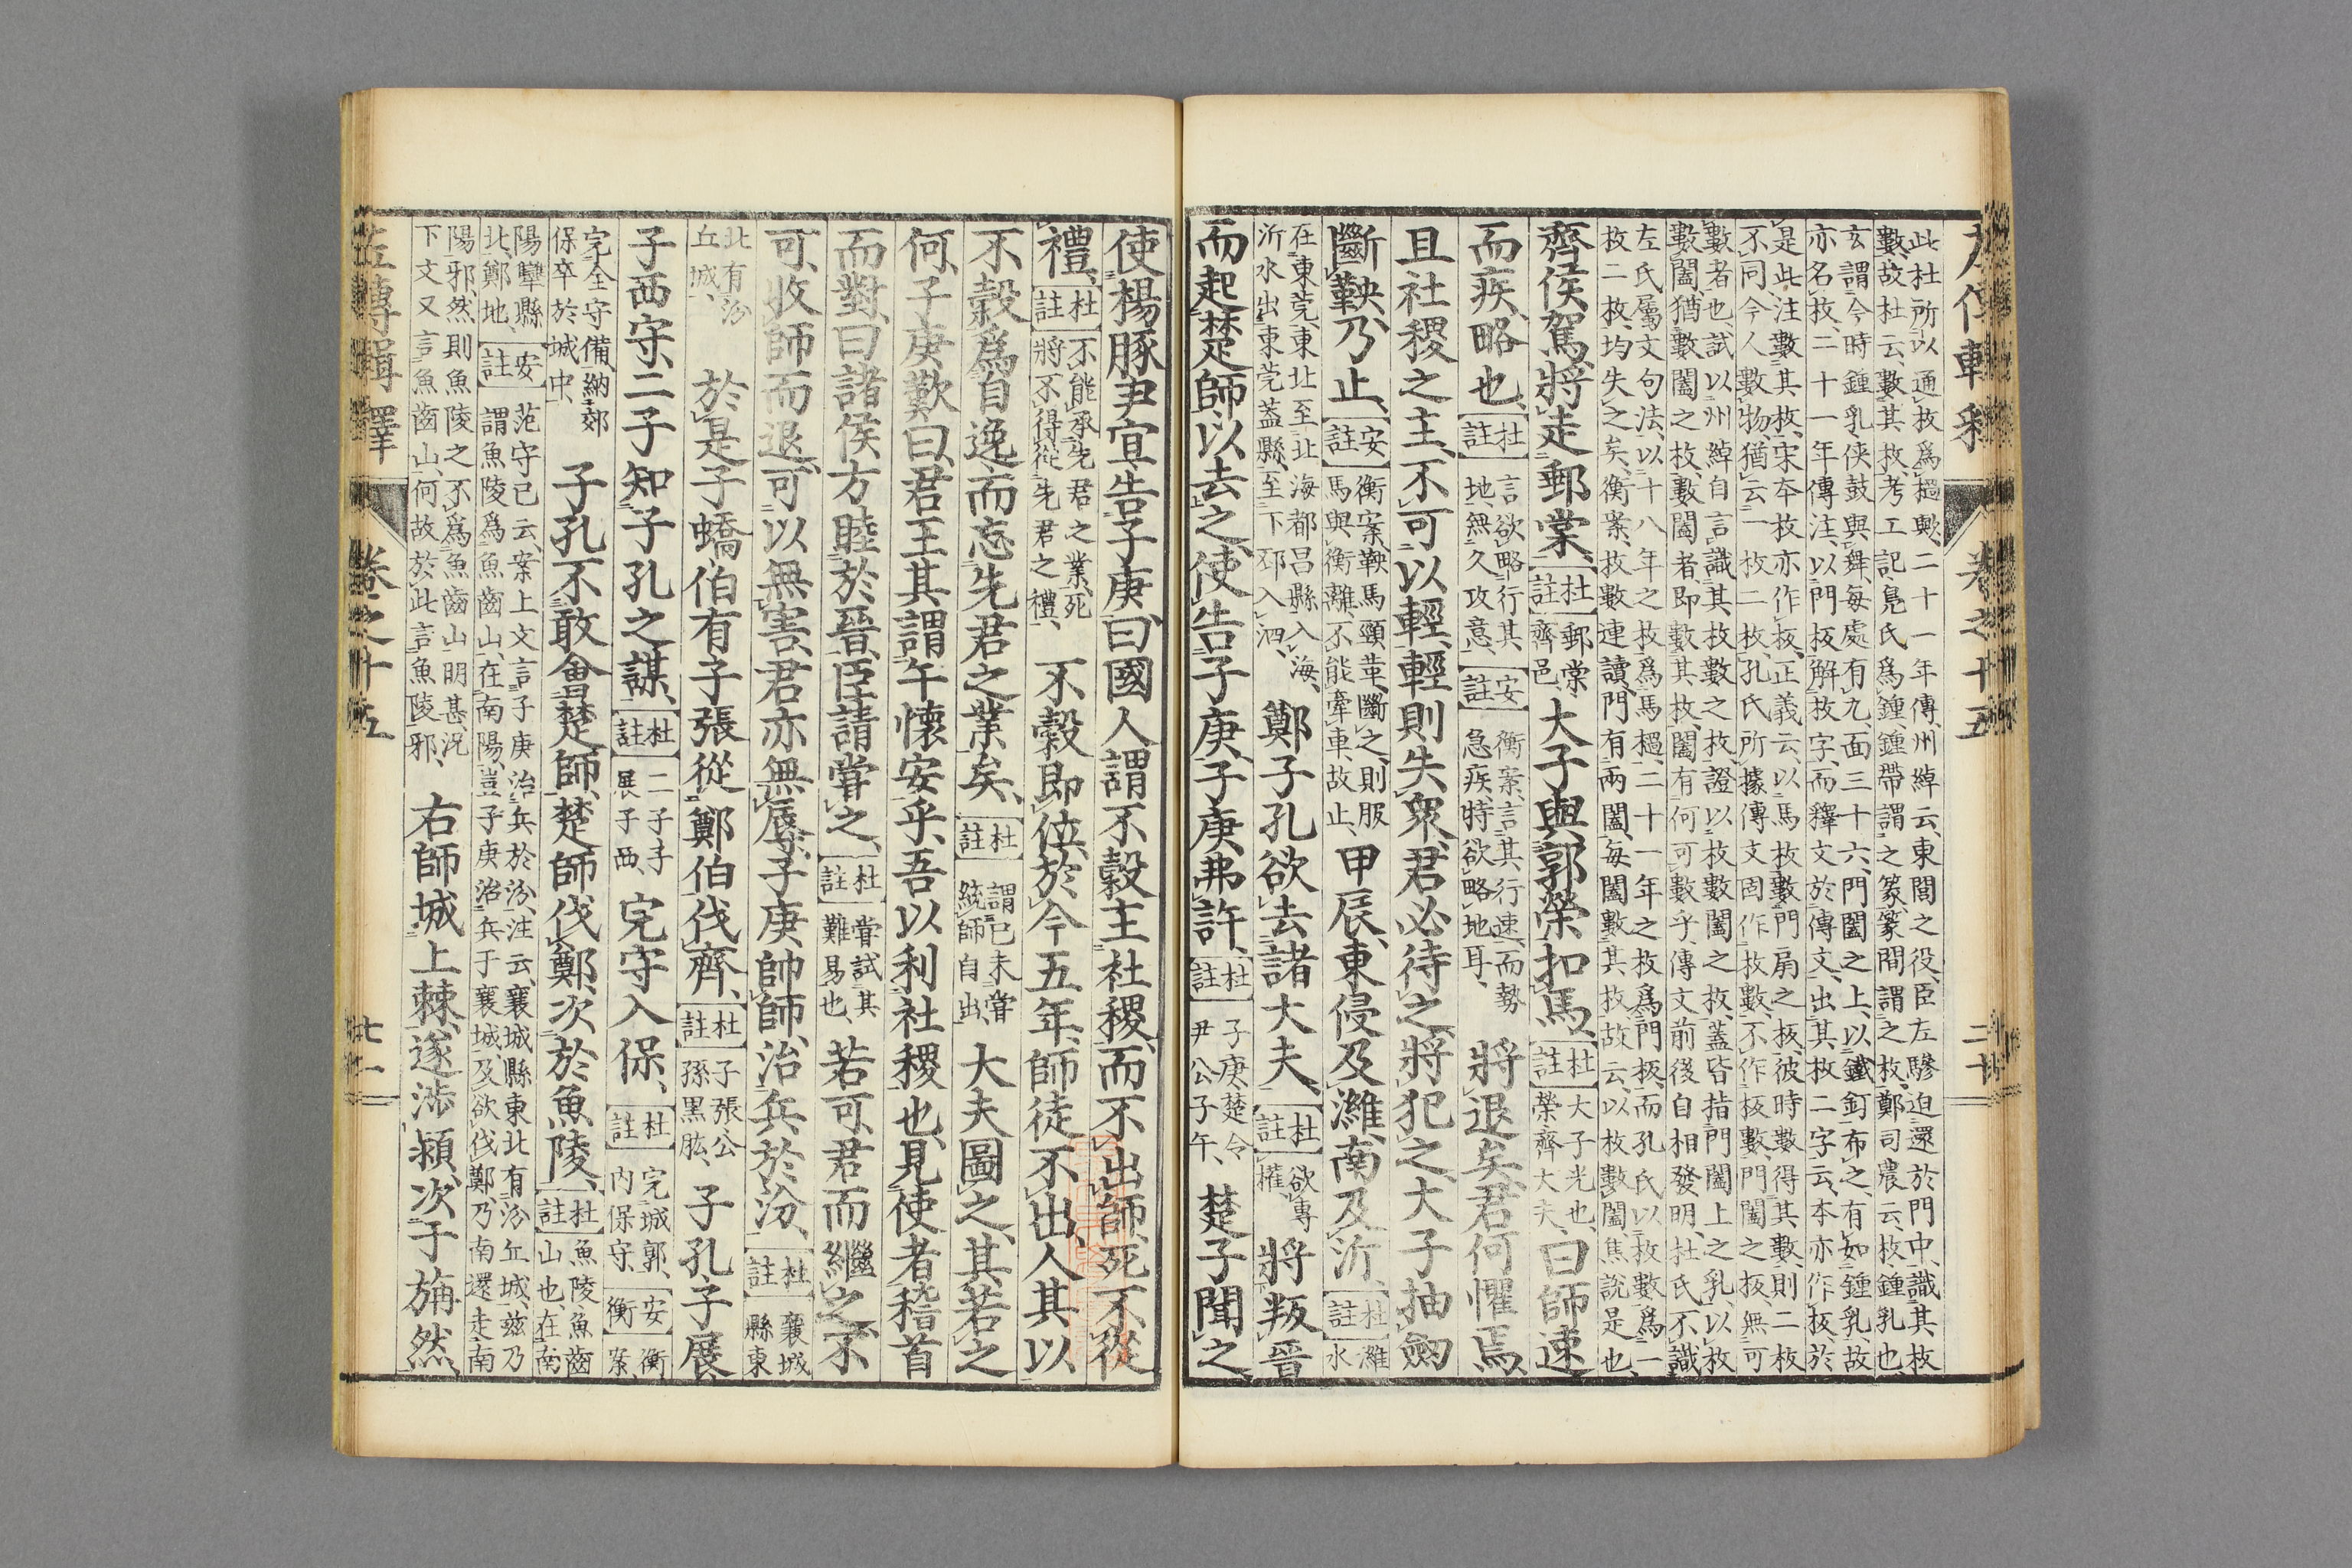 左傳輯釋 卷之十五 二十
此杜所以通枚爲檛歟、二十一年傳、州綽云、東閭之役、臣左驂迫還於門中、識其枚
數、故杜云數其枚、考工記鳧氏爲鍾、鍾帶謂之篆、篆間謂之枚、鄭司農云、枚鍾乳也、
玄謂今時鍾乳、俠鼓與舞、每處有九、面三十六、門闔之上、以鐵釘布之、有如鍾乳、故
亦名枚、二十一年傳注、以門板解枚字、而釋文於傳文、出其枚二字云、本亦作板、於
是此注數其枚、宋本枚亦作板、正義云、以馬枚數門扇之板、彼時數得其數、則二枚
不同、今人數物、猶云一枚二枚、孔氏所據傳文固作枚數、不作板數、門闔之板、無可
數者也、試以州綽自言識其枚數之枚、證以枚數闔之枚、蓋皆指門闔上之乳、以枚
數闔、猶數闔之枚、數闔者、即數其枚、闔有何可數乎、傳文前後自相發明、杜氏不識
左氏屬文句法、以十八年之枚爲馬檛、二十一年之枚爲門板、而孔氏以枚數爲一
枚二枚、均失之矣、衡案、枚數連讀、門有兩闔、每闔數其枚、故云、以枚數闔、焦說是也、
齊侯駕、將走郵棠、[杜註]郵棠、齊邑、大子與郭榮扣馬、[杜註]大子光也、榮齊大夫、曰師速
而疾、略也、[杜註]言欲略行其地、無久攻意、[安註]衡案、言其行速、而勢急疾、特欲略地耳、將退矣、君何懼焉、
且社稷之主、不可以輕、輕則失衆、君必待之、將犯之、大子抽劒
斷鞅、乃止、[安註]衡案、鞅馬頸革、斷之、則服馬與衡離、不能牽車、故止、甲辰、東侵及濰、南及沂、[杜註]濰水
在東莞、東北至北海都昌縣入海、沂水出東莞蓋縣、至下邳入泗、鄭子孔欲去諸大夫、[杜註]欲專權、將叛晉
而起楚師以去之、使告子庚、子庚弗許、[杜註]子庚楚令尹公子午、楚子聞之
使楊豚尹宜告子庚、曰國人謂不穀主社稷、而不出師、死不從
禮、[杜註]不能承先君之業、死將不得從先君之禮、不穀即位、於今五年、師徒不出、人其以
不穀爲自逸、而忘先君之業矣、[杜註]謂己未嘗統師自出、大夫圖之、其若之
何、子庚歎曰、君王其謂午懷安乎、吾以利社稷也、見使者稽首
而對、曰諸侯方睦於晉、臣請嘗之、[杜註]嘗試其難易也、若可、君而繼之、不
可、收師而退、可以無害、君亦無辱、子庚帥師、治兵於汾、[杜註]襄城縣東
北有汾丘城、於是子蟜伯有子張從鄭伯伐齊、[杜註]子張、公孫黑肱、子孔子展
子西守、二子知子孔之謀、[杜註]二子子展子西、完守入保、[杜註]完城郭、內保守、[安衡]衡案、
完全守備、納郊保卒於城中、子孔不敢會楚師、楚師伐鄭、次於魚陵、[杜註]魚陵、魚齒山也、在南
陽犨縣北、鄭地、[安註]范守己云、案上文言子庚治兵於汾、注云、襄城縣東北有汾丘城、玆乃謂魚陵爲魚齒山、在南陽、豈子庚治兵于襄城、及欲伐鄭、乃南還走南
陽邪、然則魚陵之不爲魚齒山明甚、況下文又言魚齒山、何故於此言魚陵邪、右師城上棘、遂涉潁、次于旃然、
左傳輯釋 卷之十五